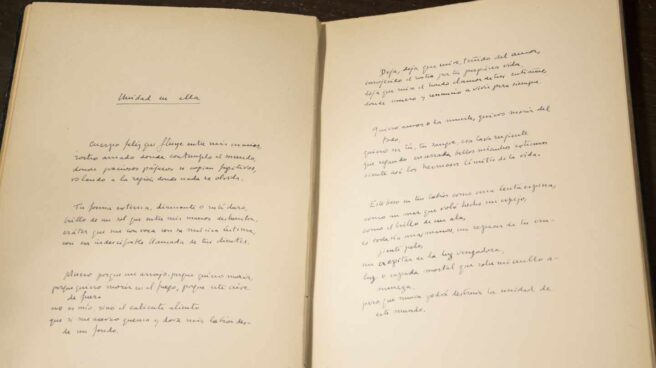 Unidad en ella
Cuerpo feliz que fluye entre mis manos,
rostro amado donde contemplo el mundo,
donde graciosos pájaros se copian fugitivos,
volando a la región donde nada se olvida.
Tu forma externa, diamante o rubí duro,
brillo de un sol que entre mis manos deslumbra,
cráter que me convoca con su música íntima,
con esa indescifrable llamada de tus dientes.
Muero porque me arrojo, porque quiero morir,
porque quiero vivir en el fuego, porque este aire
de fuera
no es mío, sino el caliente aliento
que si me acerco quema y dora mis labios des-
de un fondo.
Deja, deja que mire, teñido del amor,
enrojecido el rostro por tu purpúrea vida,
deja que mire el hondo clamor de tus entrañas,
donde muero y renuncio a vivir para siempre.
Quiero amor o la muerte, quiero morir del
todo,
quiero ser tú, tu sangre, esa lava rugiente
que regando encerrada bellos miembros extremos
siente así los hermosos límites de la vida.
Este beso en tus labios como una lenta espina,
como un mar que voló hecho un espejo,
como el brillo de un ala,
es todavía unas manos, un repasar de tu cru-
jiente pelo,
un crepitar de la luz vengadora,
luz o espada mortal que sobre mi cuello a-
menaza,
pero que nunca podrá destruir la unidad de
este mundo.